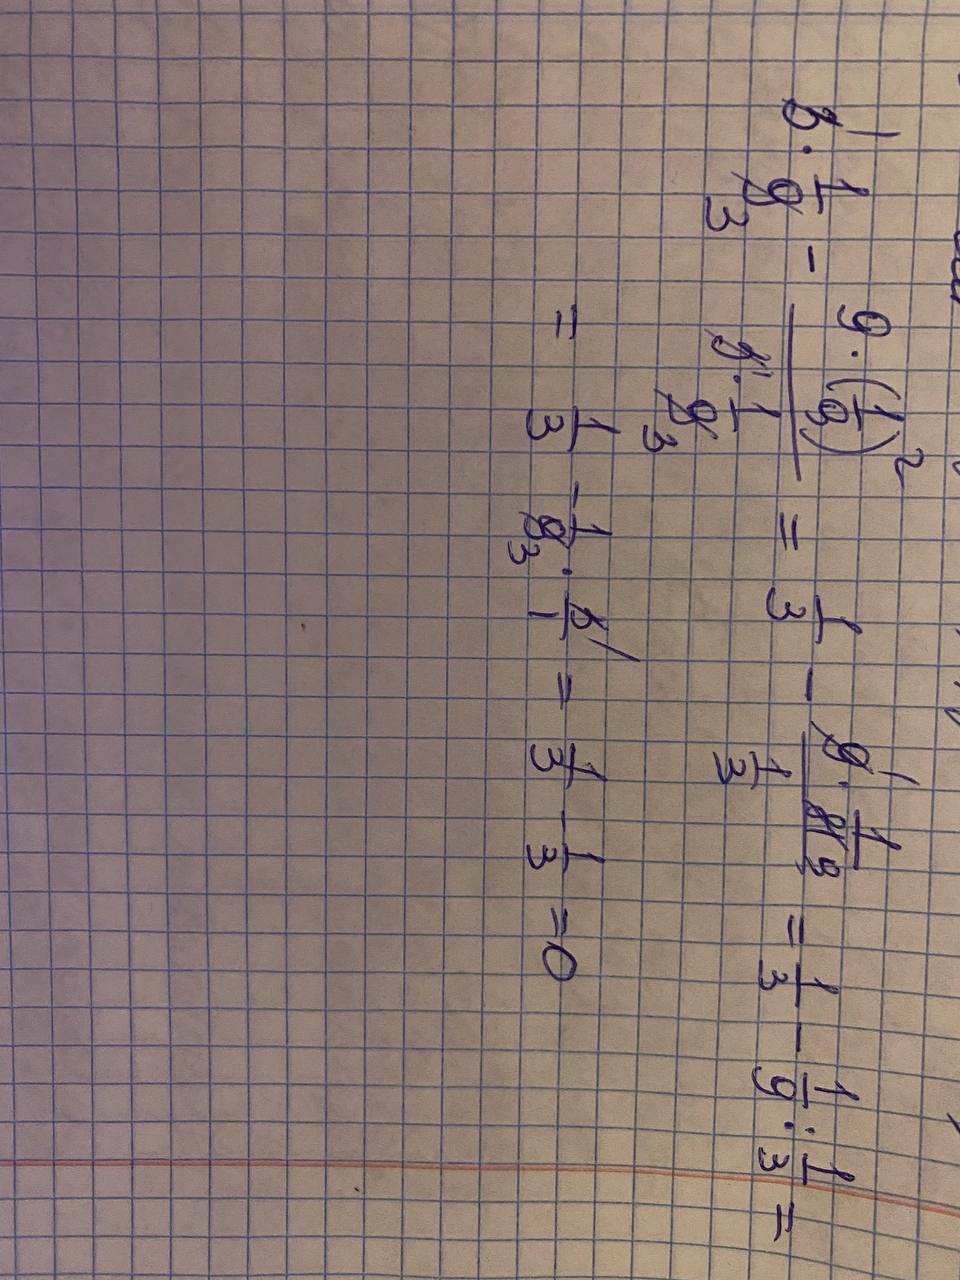 3 · 1/9 - (9 · (1/9)²)/(3 · 1/9) = 1/3 - (9 · 1/81)/(1/3) = 1/3 - 1/9 : 1/3 =
= 1/3 - 1/9 · 3/1 = 1/3 - 1/3 = 0